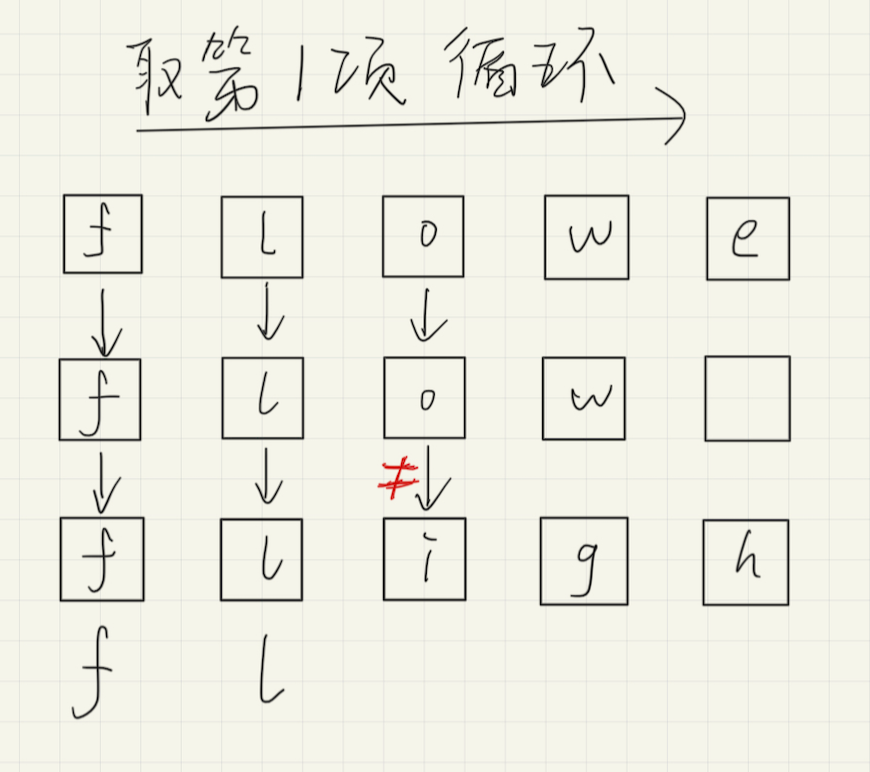 取第1项 循环
f l o w e
f l o w
≠
f l i g h
f l